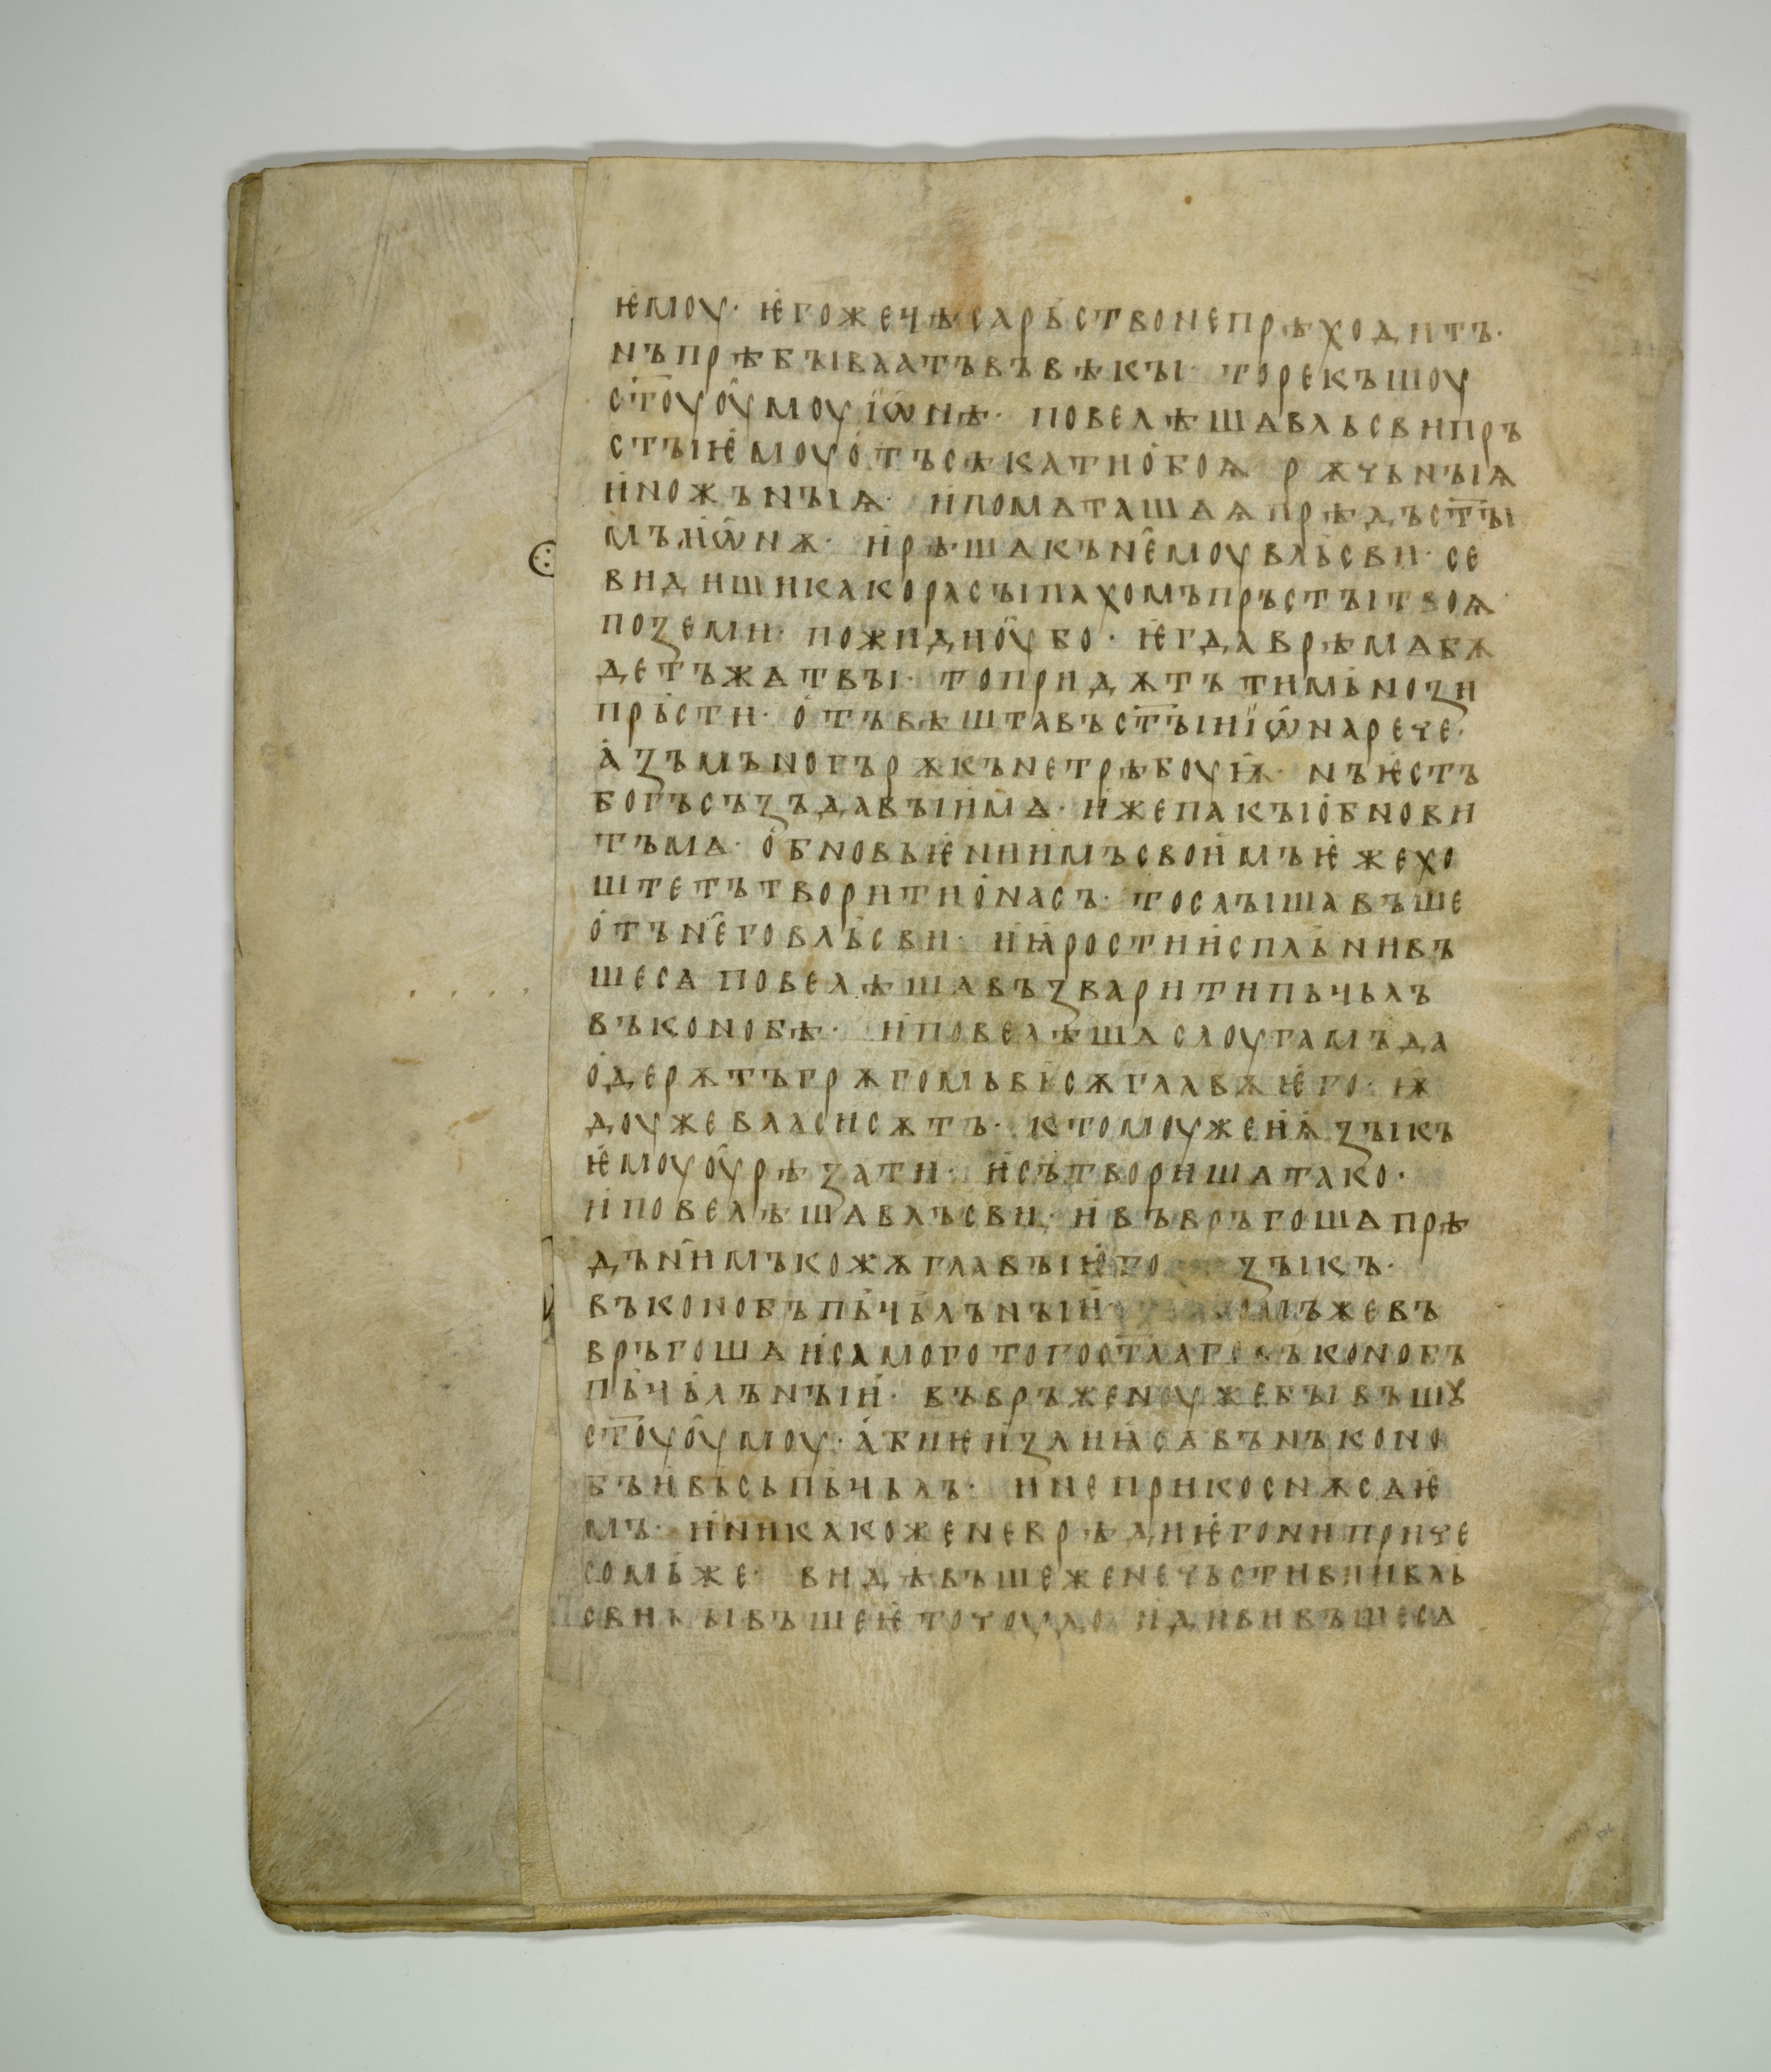 ѥмоу· ѥгожечѣсарьствонепрѣходитъ·
нъпрѣбꙑваатъвъвѣкꙑ· торекъшоу
ст҃оуоумоуїѡнѣ· повелѣшѧвльсвипръ
стꙑѥмоуотъсѣкатиобоѩ рѫчьнꙑѩ
иножънꙑѩ· ипоматашѧѩпрѣдъст҃ꙑ
мъиѡнѫ· ирѣшѧкън҄емоувльсви· се
видишикакорасꙑпахомъпръстꙑтвоѩ
поꙁеми· пожидиоубо· ѥгдаврѣмѧбѫ
детъжѧтвꙑ· топридѫтътимъноꙁи
прьсти· отъвѣштавъст҃ꙑиїѡнарече·
аꙁъмъногърѫкънетрѣбоуѭ· нъѥстъ
богъсъꙁъдавꙑимѧ· ижепакꙑобнови
тъмѧ· обновьѥниимъсвоимъѥжехо
штетътворитионасъ· тослꙑшавъше
отън҄еговльсви· иꙗростииспльнивъ
шесѧ повелѣшѧвъꙁваритипьчьлъ
въконобѣ· иповелѣшѧслоугамъда
одерѫтъгрѫгомьвьсѫглавѫѥго· ѭ
доужевласисѫтъ· ктомоужеиѩꙁꙑкъ
ѥмоуоурѣꙁати· исътворишѧтако·
иповелѣшѧвлъсви· ивъвръгошѧпрѣ
дън҄имькожѫглавꙑѥго ꙁꙑкъ·
въконобъпьчьлънꙑи мъжевъ
връгошѧисамоготогост҃ааговъконобъ
пьчьлънꙑи· въврьженоужебꙑвъшꙋ
ст҃оуоумоу· абиѥиꙁлиꙗсѧвънъконо
бъивьсьпьчьлъ· инеприкоснѫсѧѥ
мь· иникакоженеврѣдиѥгониприче
сомьже· видѣвъшеженечьстивиивль
свибꙑвъшеѥточоудо идививъшесѧ